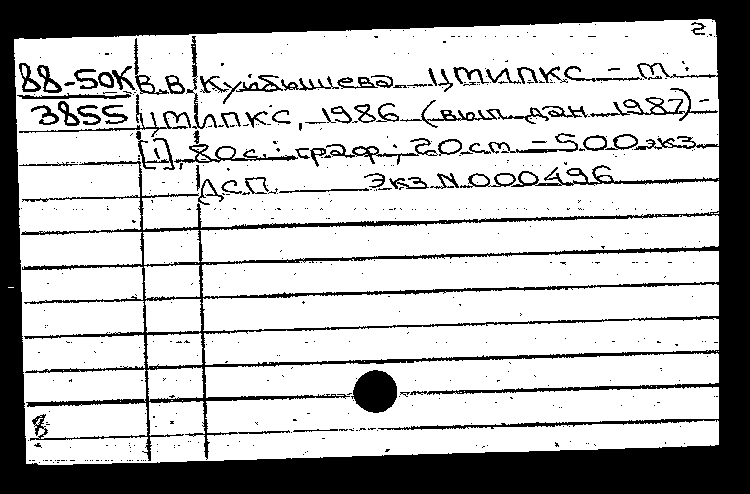 2
88-50К В.В. Куйбышева ЦМИПКС - М.:
3855 ЦМИПКС, 1986 (вып. дан. 1987) -
[1], 80 с.: граф; 20 ст - 500 экз
ДСП Экз N 000496
8